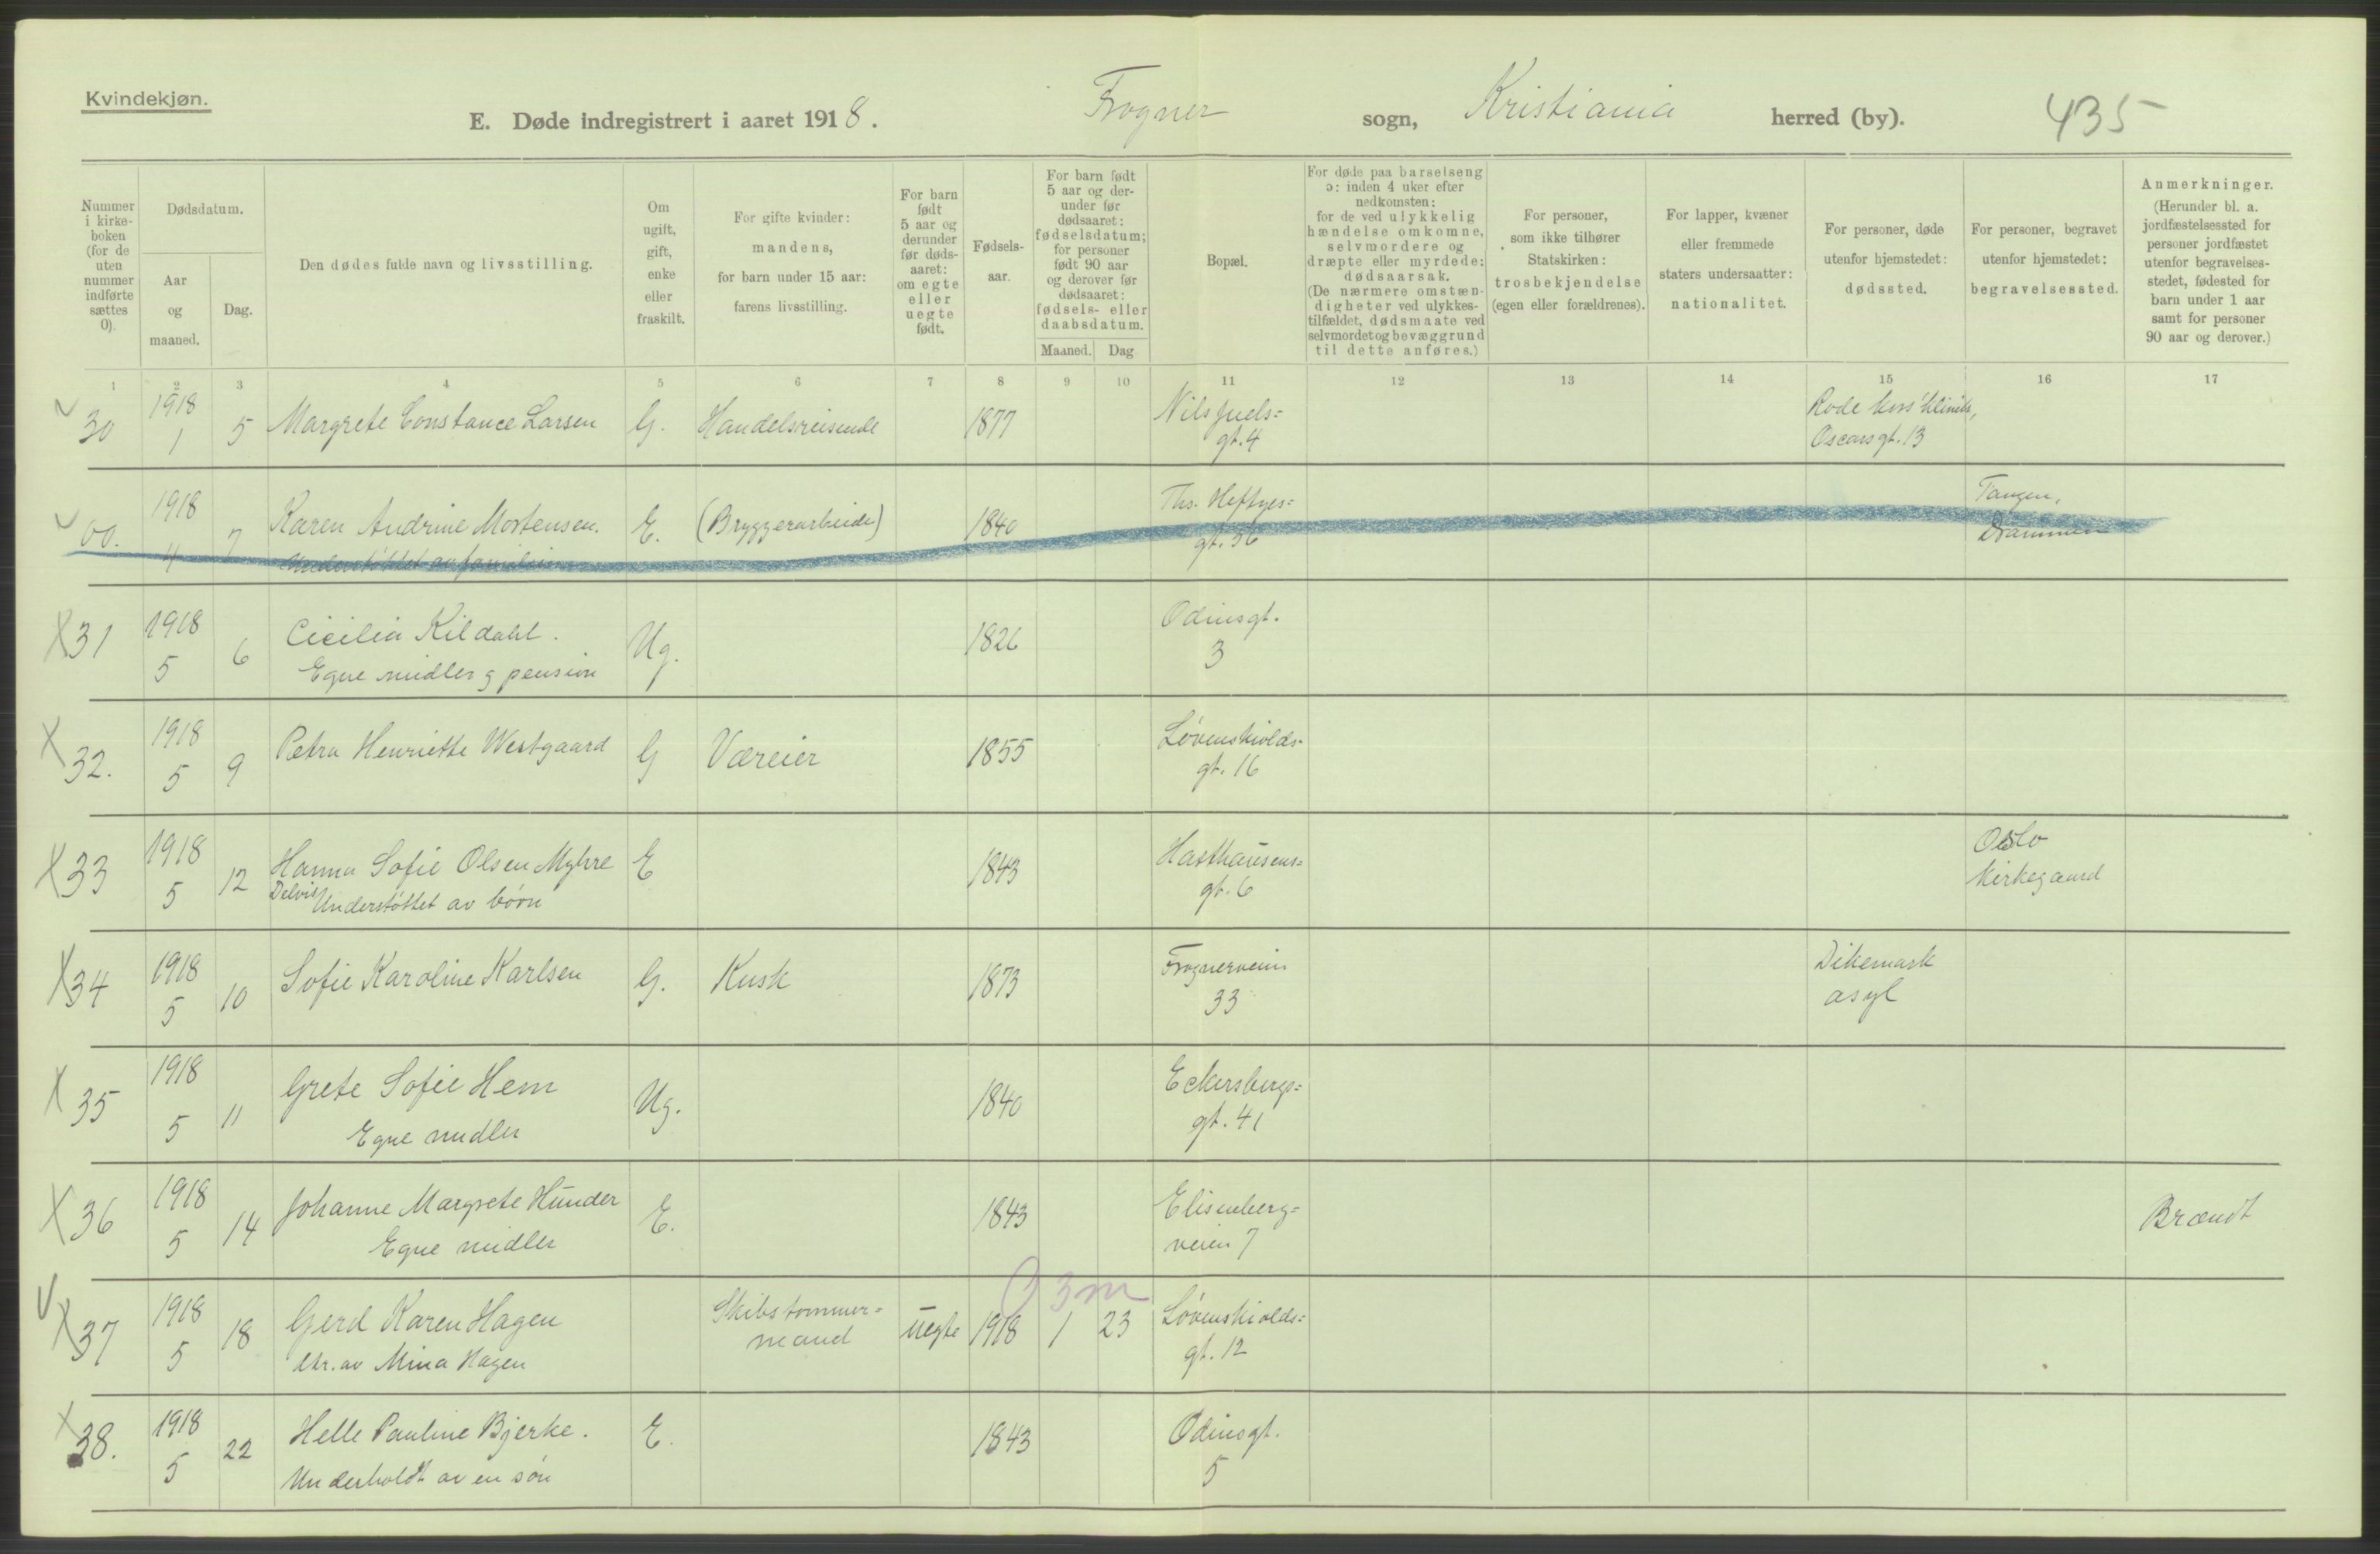 Kvindekjøn.
E. Døde indregistrert i aaret 1918. Frogner sogn, Kristiania herred (by). 435
Nummer i kirkeboken (for de uten nummer indførte sættes 0).
Dødsdatum.
Aar og maaned.
Dag.
Den dødes fulde navn og livsstilling.
Om ugift, gift, enke eller fraskilt.
For gifte kvinder: mandens, for barn under 15 aar: farens livsstilling.
For barn født 5 aar og derunder før dødsaaret: om egte eller uegte født.
Fødselsaar.
For barn født 5 aar og derunder før dødsaaret: fødselsdatum; for personer født 90 aar og derover før dødsaaret: fødsels- eller daabsdatum.
Maaned. Dag
Bopæl.
For døde paa barselseng ɔ: inden 4 uker efter nedkomsten: for de ved ulykkelig hændelse omkomne, selvmordere og dræpte eller myrdede: dødsaarsak. (De nærmere omstændigheter ved ulykkestilfældet, dødsmaate ved selvmordet og bevæggrund til dette anføres.)
For personer, som ikke tilhører Statskirken: trosbekjendelse (egen eller forældrenes).
For lapper, kvæner eller fremmede staters undersaatter: nationalitet.
For personer, døde utenfor hjemstedet: dødssted.
For personer, begravet utenfor hjemstedet: begravelsessted.
Anmerkninger. (Herunder bl. a. jordfæstelsessted for personer jordfæstet utenfor begravelsesstedet, fødested for barn under 1 aar samt for personer 90 aar og derover.)
1 2 3 4 5 6 7 8 9 10 11 12 13 14 15 16 17
30 1918 1 5 Margrete Constance Larsen G. Handelsreisende 1877 Nils Juels=
gt. 4 Røde kors' klinik, Oscarsgt. 13
00. 1918 4 7 Karen Andrine Mortensen. E. (Bryggerarbeide) 1840 Ths. Heftyes=
Understøttet av familien gt. 56 Tangen, Drammen
X 31 1918 5 6 Cicilia Kildahl. Ug. 1826 Odinsgt.
Egne midler g pension 3
X 32. 1918 5 9 Petra Henriette Westgaard G Væreier 1855 Løvenskiolds-
gt. 16
X 33 1918 5 12 Hanna Sofie Olsen Myhre E 1843 Hasthausens=
Delvis Understøttet av børn gt. 6 Oslo kirkegaard
X 34 1918 5 10 Sofie Karoline Karlsen G. Kusk 1873 Frognerveien
33 Dikemark asyl
X 35 1918 5 11 Grete Sofie Hem Ug. 1840 Eckersbergs=
Egne midler gt. 41
X 36 1918 5 14 Johanne Margrete Hunder E. 1843 Elisenberg=
Egne midler veien 7 Brændt
3 m
X 37 1918 5 18 Gerd Karen Hagen Skibstømmer= uegte 1918 1 23 Løvenskiolds=
av Mina Hagen mand gt. 12
X 38. 1918 5 22 Helle Pauline Bjerke. E. 1843 Odinsgt.
Underholdt av en søn 5